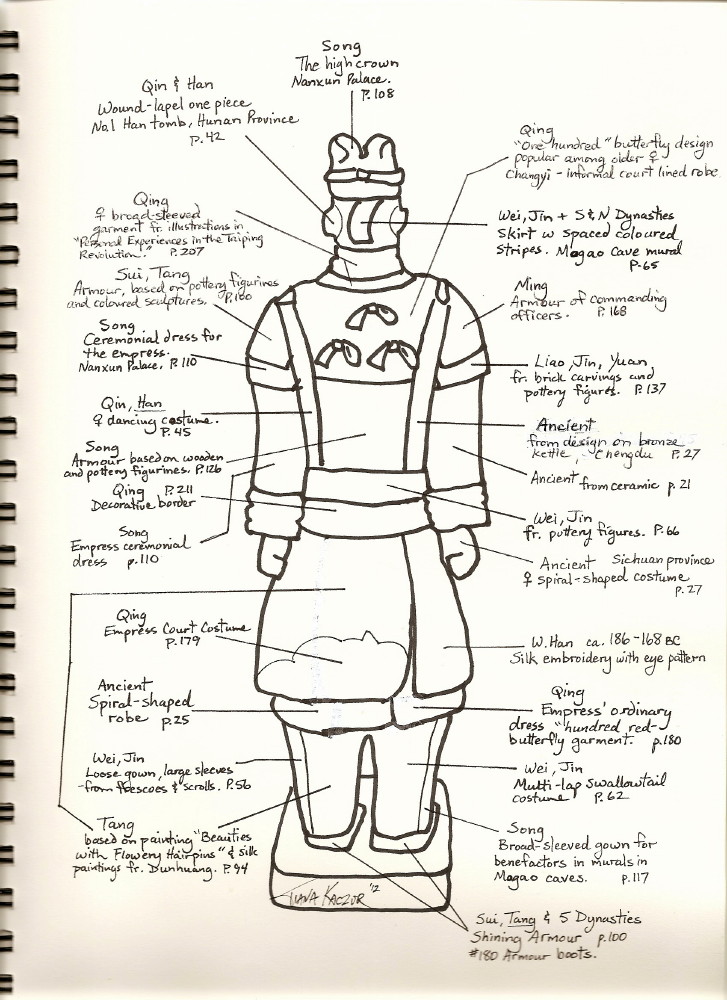 Song
The high crown
Nanxun Palace.
P.108
Qin & Han
Wound-lapel one piece
No.1 Han tomb, Hunan Province
P.42
Qing
"One hundred" butterfly design
popular among older ♀
Changyi - informal court lined robe
Qing
♀ broad-sleeved
garment fr. illustrations in
"Personal Experiences in the Taiping
Revolution." P.207
Wei, Jin + S & N Dynasties
Skirt w spaced coloured
stripes. Mogao Cave mural
P.65
Sui, Tang
Armour, based on pottery figurines
and coloured sculptures. P.100
Ming
Armour of commanding
officers. P.168
Song
Ceremonial dress for
the empress.
Nanxun Palace. P.110
Liao, Jin, Yuan
fr. brick carvings and
pottery figures. P.137
Qin, Han
♀ dancing costume.
P.45
Ancient
from design on bronze
kettle, Chengdu P.27
Song
Armour based on wooden
and pottery figurines. P.126
Ancient from ceramic p.21
Qing P.211
Decorative border
Wei, Jin
fr. pottery figures. P.66
Song
Empress ceremonial
dress p.110
Ancient Sichuan province
♀ spiral-shaped costume
P.27
Qing
Empress Court Costume
P.179
W.Han ca. 186-168 BC
Silk embroidery with eye pattern
Ancient
Spiral-shaped
robe P.25
Qing
Empress' ordinary
dress "hundred red-
butterfly garment. p.180
Wei, Jin
Loose gown, large sleeves
-from frescoes & scrolls. P.56
Wei, Jin
Multi-lap Swallowtail
costume P.62
Tang
based on painting "Beauties
with Flowery Hairpins" & silk
paintings fr. Dunhuang. P.94
Song
Broad-sleeved gown for
benefactors in murals in
Mogao caves. p.117
TIANA KACZOR '12
Sui, Tang & 5 Dynasties
Shining Armour p.100
#180 Armour boots.